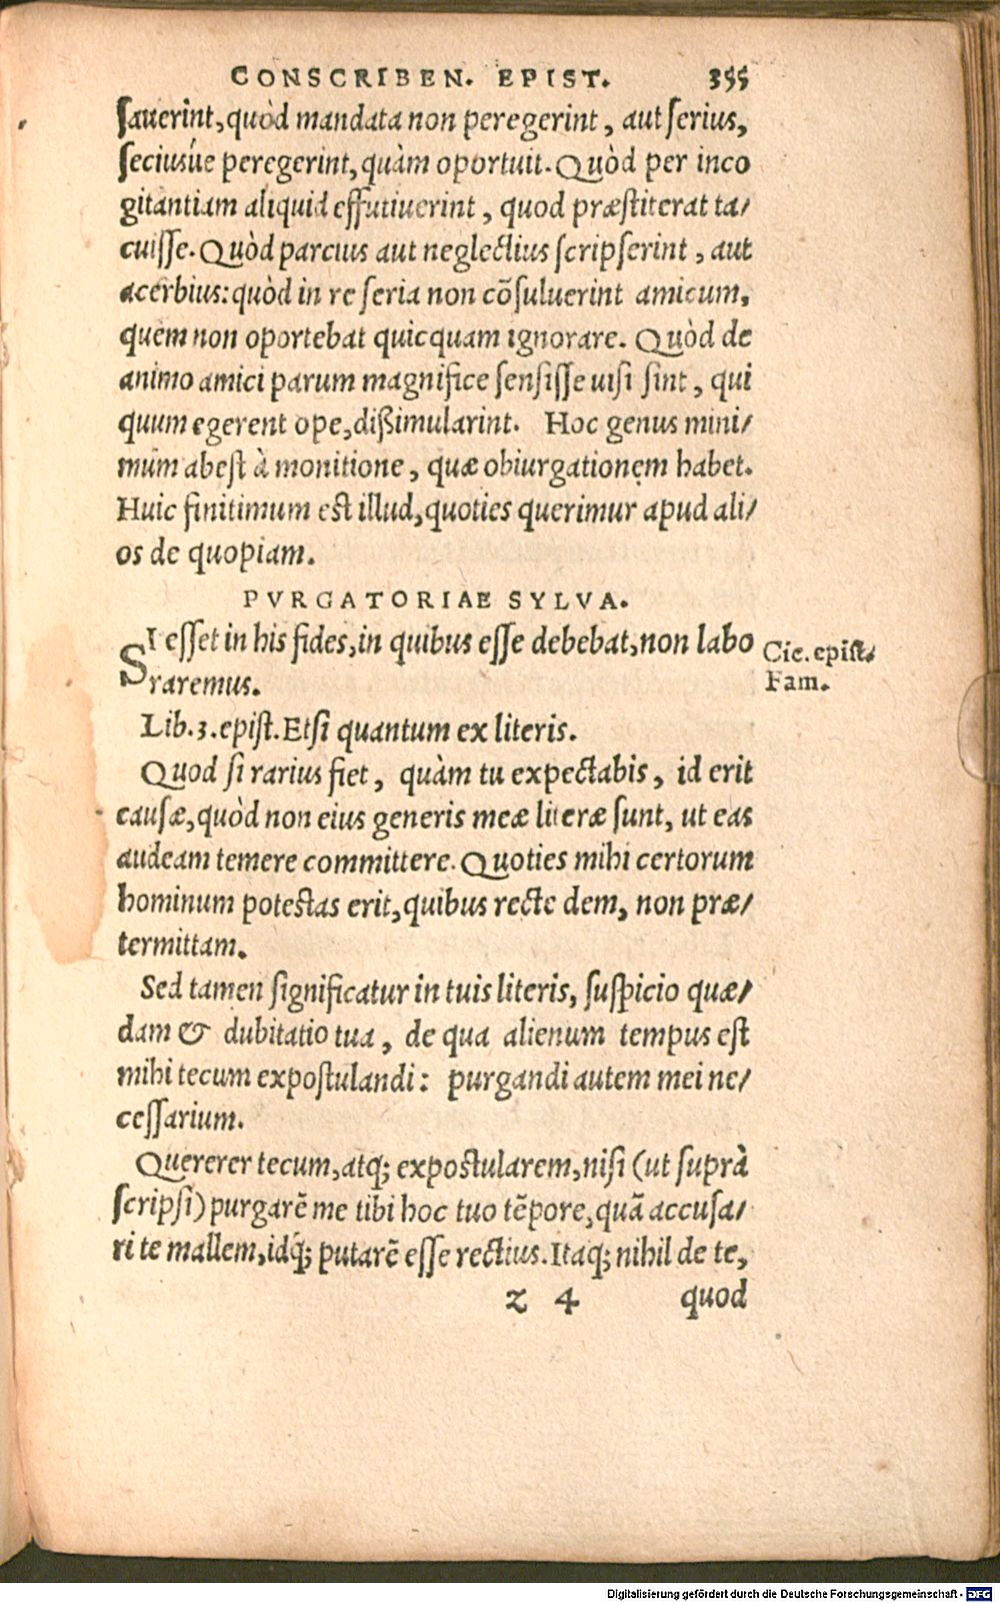 CONSCRIBEN. EPIST. 355
sauerint, quòd mandata non peregerint, aut serius,
seciusúe peregerint, quàm oportuit. Quòd per inco
gitantiam aliquid effutiuerint, quod præstiterat ta/
cuisse. Quòd parcius aut neglectius scripserint, aut
acerbius: quòd in re seria non cõsuluerint amicum,
quem non oportebat quicquam ignorare. Quòd de
animo amici parum magnifice sensisse uisi sint, qui
quum egerent ope, dißimularint. Hoc genus mini/
mum abest à monitione, quæ obiurgationem habet.
Huic finitimum est illud, quoties querimur apud ali/
os de quopiam.
PVRGATORIAE SYLVA.
SI esset in his fides, in quibus esse debebat, non labo
raremus.
Cic. epist.
Fam.
Lib. 3. epist. Etsi quantum ex literis.
Quod si rarius fiet, quàm tu expectabis, id erit
causæ, quòd non eius generis meæ literæ sunt, ut eas
audeam temere committere. Quoties mihi certorum
hominum potestas erit, quibus recte dem, non præ/
termittam.
Sed tamen significatur in tuis literis, suspicio quæ/
dam & dubitatio tua, de qua alienum tempus est
mihi tecum expostulandi: purgandi autem mei ne/
cessarium.
Quererer tecum, atq; expostularem, nisi (ut suprà
scripsi) purgarẽ me tibi hoc tuo tẽpore, quã accusa/
ri te mallem, idq́; putarẽ esse rectius. Itaq; nihil de te,
z 4 quod
Digitalisierung gefördert durch die Deutsche Forschungsgemeinschaft - DFG